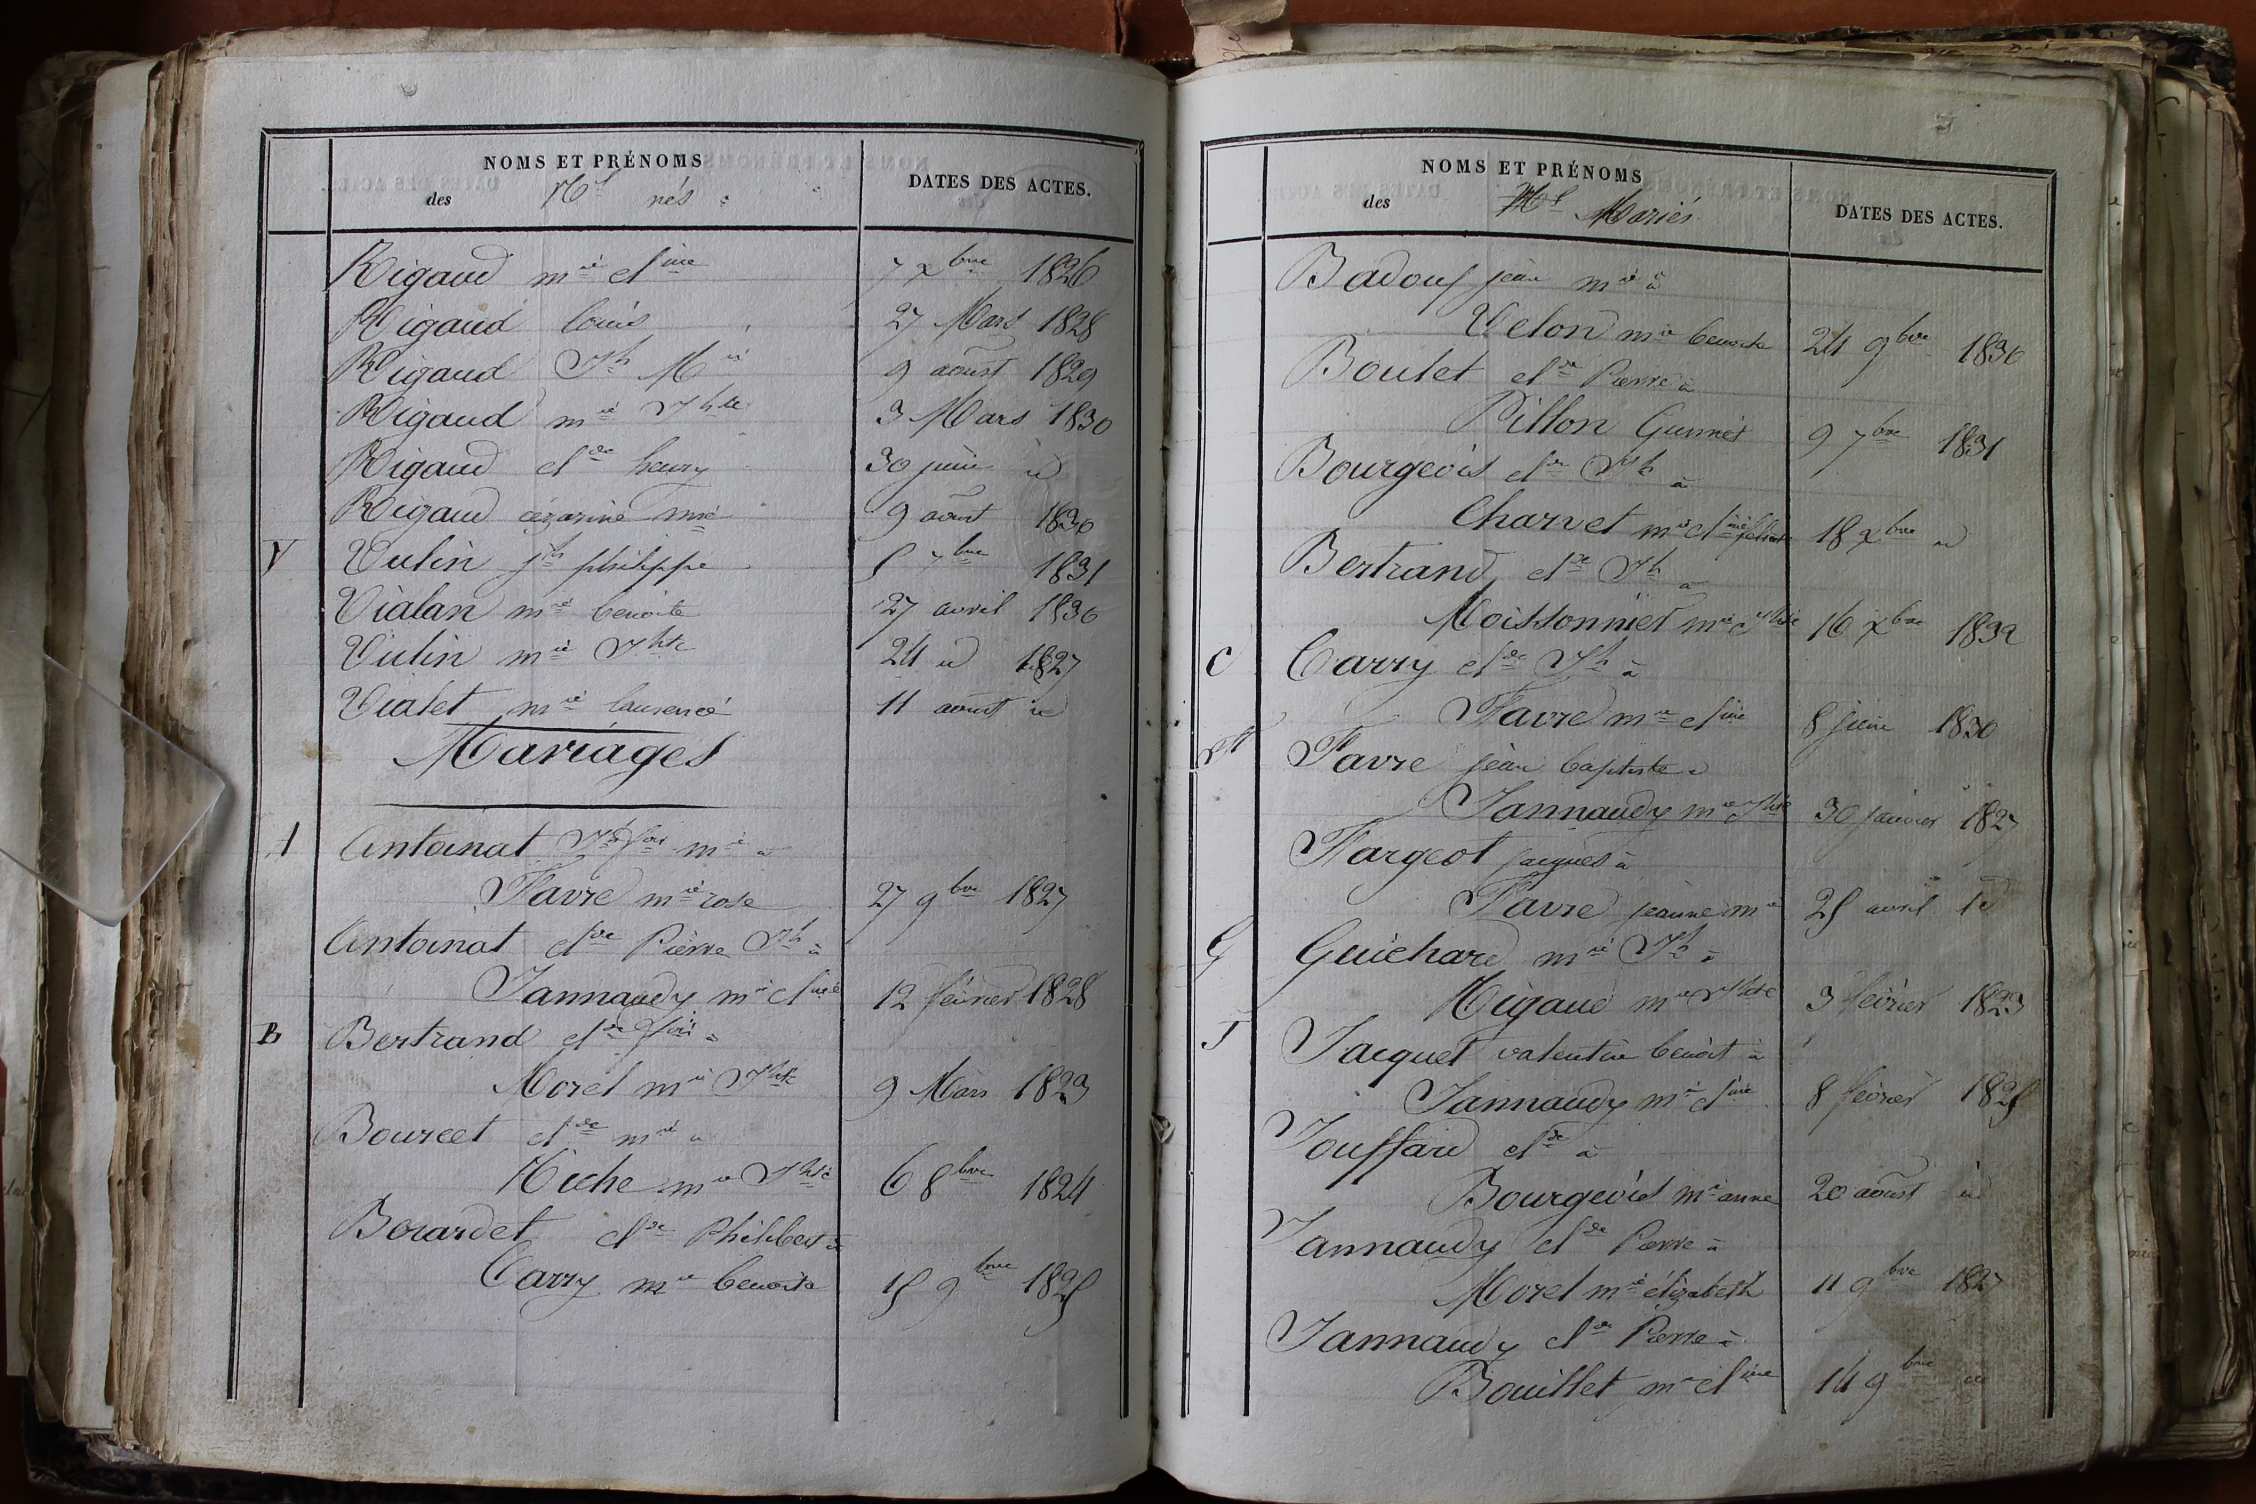 NOMS ET PRÉNOMS
des nés
DATES DES ACTES.
Rigaud mie cline 7 xbre 1826
Rigaud louis 27 Mars 1828
Rigaud Jh Mie 9 aoust 1829
Rigaud mie Jhte 3 Mars 1830
Rigaud clde henry 30 juin id
Rigaud cézarine mie 9 aoust 1830
V Vulin jh philippe 5 7bre 1831
Vialan mie benoite 27 avril 1830
Vulin mie Jhte 24 id 1827
Vialet mie laurence 11 aoust id
Mariages
A Antoinat Jh fois mie à
Favre mie rose 27 9bre 1827
Antoinat clde Pierre Jh à
Jannaudy mie cline 12 février 1828
B Bertrand clde fois à
Morel mie Jhte 9 Mars 1823
Bourcet clde mie à
Riche mie Jhte 6 8bre 1824
Borardet clde Philibert à
Carry mie benoite 15 9bre 1825
NOMS ET PRÉNOMS
des Mariés
DATES DES ACTES.
Badouf jean mie à
Velon mie benoite 24 9bre 1830
Boulet clde Pierre à
Pillon 9 7bre 1831
Bourgeois clde Jh à
Charvet mie cline 18 xbre id
Bertrand clde Jh à
Moissonnier mie Jhte 16 xbre 1832
C Carry clde Jh à
Favre mie cline 8 juin 1830
Favre jean baptiste à
Jannaudy mie Jhte 30 janvier 1827
Fargeot jacques à
Favre jeanne mie 25 avril id
G Guichard mie Jh à
Rigaud mie Jhte 3 février 1823
J Jacquet valentin benoit à
Jannaudy mie cline 8 février 1825
Jouffard clde à
Bourgeois mie anne 20 aoust id
Jannaudy clde Pierre à
Morel mie élizabeth 11 9bre 1827
Jannaudy clde Pierre à
Bouillet mie cline 14 9bre id